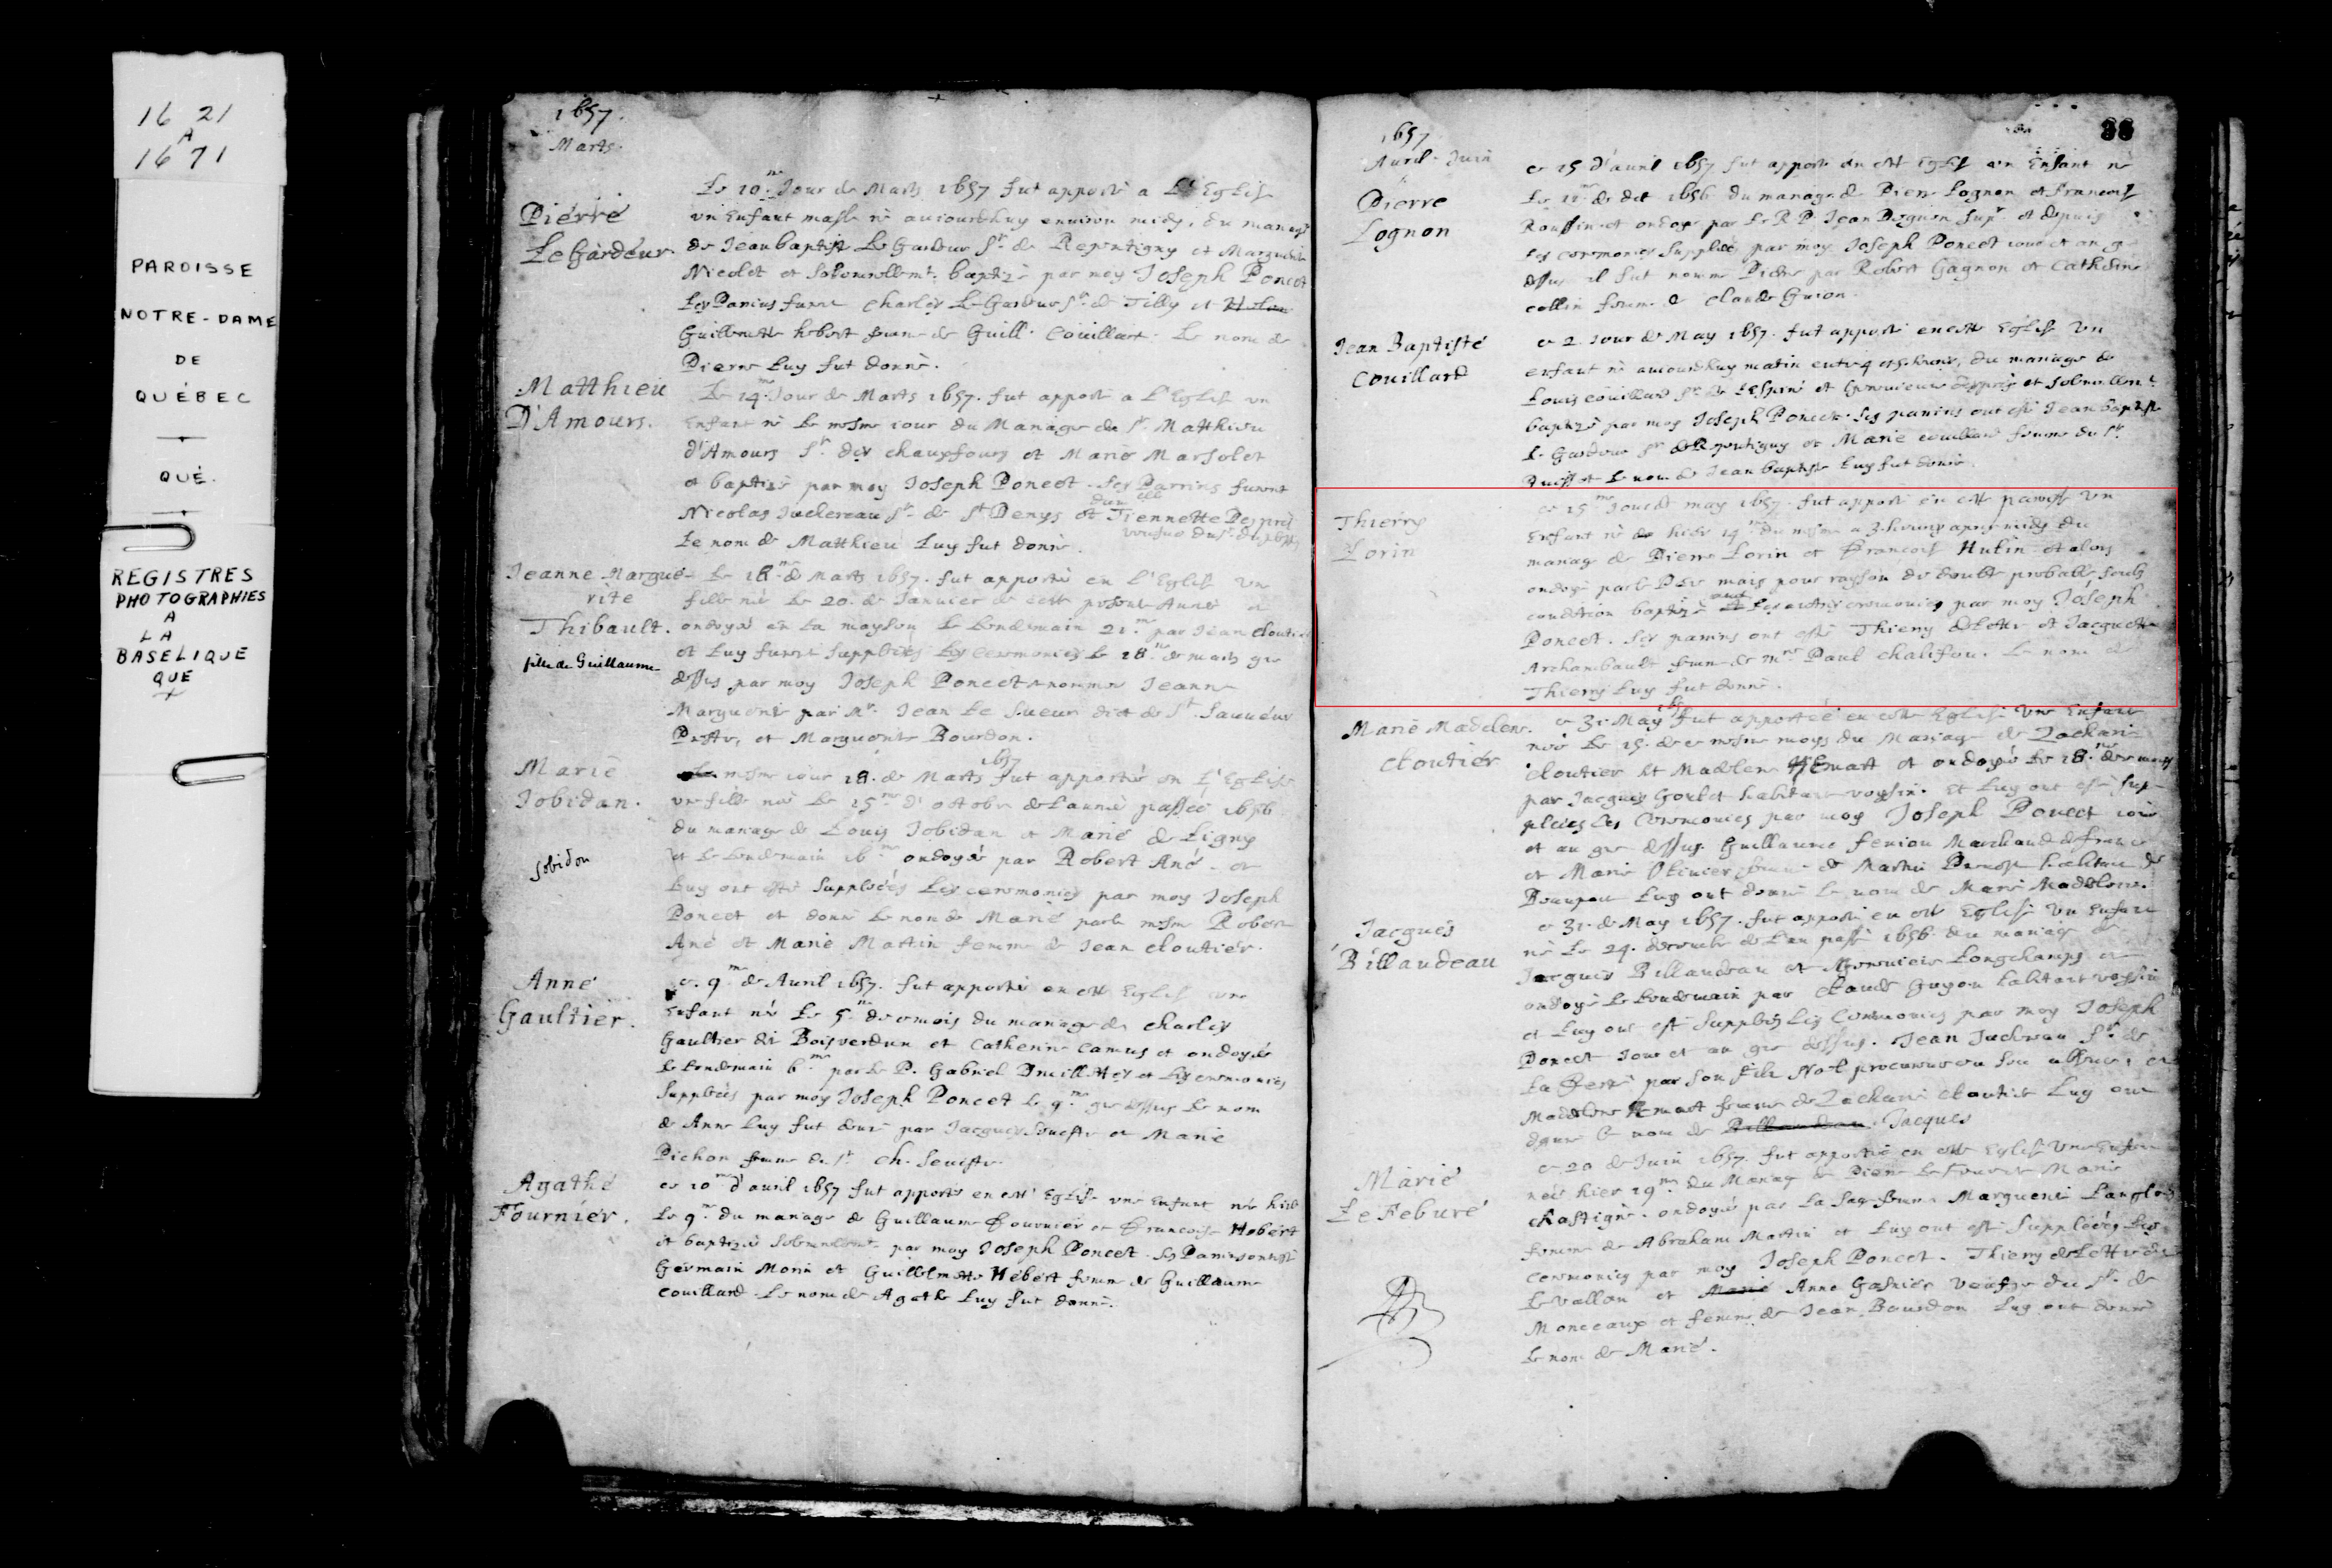 16 21
A
16 71
PAROISSE
NOTRE-DAME
DE
QUÉBEC
QUÉ.
REGISTRES
PHOTOGRAPHIES
A
LA
BASELIQUE
QUÉ
1657.
Marts.
Pierre
Le Gardeur.
Le 10me Jour de Marts 1657 fut apporté a L'Eglise
vn Enfant masle né auiourdhuy enuiron midy, du mariage
de Jean baptiste Le Gardeur Sr de Repentigny et Marguerite
Nicolet et solemnellemt. baptizé par moy Joseph Poncet
Les Parins furent Charles Le Gardeur Sr de Tilly et
Guillemette hebert femme de Guill. Couillart. Le nom de
Pierre luy fut donné.
Matthieu
D'Amours.
Le 14me Jour de Marts 1657. fut apporté a L'Eglise vn
Enfant né le mesme iour du Mariage du Sr. Matthieu
d'Amours Sr. des chaufours et Marie Marsolet
et baptizé par moy Joseph Poncet. Ses Parrins furent
Nicolas Juchereau Sr. de St Denys et Tiennette Desprès
Le nom de Matthieu luy fut donné.
Jeanne Margue-
rite
Thibault.
fille de Guillaume
Le 18me de Marts 1657. fut apportée en L'Eglise vne
fille née le 20. de Januier de cette presente Année et
ondoyée en la mayson le lendemain 21.me par Jean cloutier
et luy furent suppléées les ceremonies le 18me de marts que
dessus par moy Joseph Poncet nommée Jeanne
Marguerite par Mr. Jean Le Sueur dict de St. Sauueur
Prestre, et Marguerite Bourdon.
Marie
Jobidan.
Jobidon
mesme iour 18. de Marts 1657 fut apportée en L'Eglise
vne fille née le 15me d'octobre de l'année passée 1656
du mariage de Louis Jobidan et Marie de Ligny
et le lendemain 16me ondoyée par Robert Ané. et
luy ont esté suppléées les ceremonies par moy Joseph
Poncet et donné le nom de Marie par le mesme Robert
Ané et Marie Martin femme de Jean cloutier.
Anne
Gaultier.
ce 9me de Auril 1657. fut apportée en cette Eglise vne
Enfant née le 5me de ce mois du mariage de charles
Gaultier dit Boisverdun et Catherine Camus et ondoyée
le lendemain 6me par le P. Gabriel Dreuillettes et les ceremonies
suppléées par moy Joseph Poncet le 9me que dessus le nom
de Anne luy fut donné par Jacques Seuestre et Marie
Pichon femme du Sr Ch. Seuestre.
Agathe
Fournier.
ce 10me d'auril 1657 fut apportée en cett' Eglise vne Enfant née hier
le 9me du mariage de Guillaume Fournier et Francoise Hebért
et baptizée solemnellemt par moy Joseph Poncet. Ses Parins ont esté
Germain Morin et Guillemette Hébért femme de Guillaume
Couillard. Le nom de Agathe luy fut donné.
1657
Auril - Juin
38
Pierre
Lognon
ce 15 d'auril 1657 fut apporté en cett' Eglise vn Enfant né
le de 1656 du mariage de Pierre Lognon et francoise
Roussin et ondoyé par le R P. Jean Dequen supr. et depuis
les ceremonies suppliées par moy Joseph Poncet iour et an que
dessus il fut nommé Pierre par Robert Gagnon et Catherine
collin femme de claude Guion.
Jean Baptiste
Couillard
ce 2. iour de May 1657. fut apporté en cette Eglise vn
enfant né auiourdhuy matin entre 4 et 5 heures, du mariage de
Louis couillard Sr. de Lespiné et Geneuieue Desprès et solemnellemt.
baptizé par moy Joseph Poncet. Ses parins ont esté Jean baptiste
le Gardeur Sr de Repentigny et Marie couillard femme du Sr.
et le nom de Jean baptiste luy fut donné.
Thierry
Lorin
ce 15me Jour de may 1657. fut apporté en cette paroisse vn
Enfant né hier 14me du mesme a 3. heures apres midy du
mariage de Pierre Lorin et Francoise Hulin et alors
ondoyé par le Pere mais pour rayson de doubte probable soubs
condition baptizé auec les autres ceremonies par moy Joseph
Poncet. Ses parrins ont esté Thierry de Lettre et Jacquette
Archambault femme de mre Paul chalifou. Le nom de
Thierry luy fut donné.
Marie Madelene
cloutiér
ce 31. May 1657 fut apportée en cette Eglise vne Enfant
née le 15. de ce mesme moys du Mariage de Zacharie
cloutier et Madelene Esmart et ondoyée le 18.me de ce moys
par Jacques Goulet habitant voysin. et luy ont esté sup-
pléées les Ceremonies par moy Joseph Poncet iour
et an que dessus. Guillaume feniou Marchand de france
et Marie femme de Mathu habitant de
Beauport luy ont donné le nom de Marie Madelene.
Jacques
Billaudeau
ce 31. de May 1657. fut apporté en cette Eglise vn Enfant
né le 24. decembre de l'an passé 1656. du mariage de
Jacques Billaudeau et Geneuieue Longchamps et
ondoyé le lendemain par claude Guyon habitant voysin
et luy ont esté suppléées les Ceremonies par moy Joseph
Poncet Jour et an que dessus. Jean Juchereau Sr. de
La Ferté par son fils Noel procureur en son absence, et
Madelene Esmart femme de Zacharie cloutier luy ont
donné le nom de Jacques
Marie
Le Feburé
ce 20 de Juin 1657. fut apportée en cette Eglise vne Enfant
née hier 19me du Mariage de Pierre le Feuure et Marie
chastigné. ondoyée par la sage femme Marguerite Langlois
femme de Abraham Martin et luy ont esté suppléées les
ceremonies par moy Joseph Poncet. Thierry de Lettre dit
le Vallon et Anne Gasnier veufue du Sr. de
Monceaux et femme de Jean Bourdon luy ont donné
le nom de Marie.